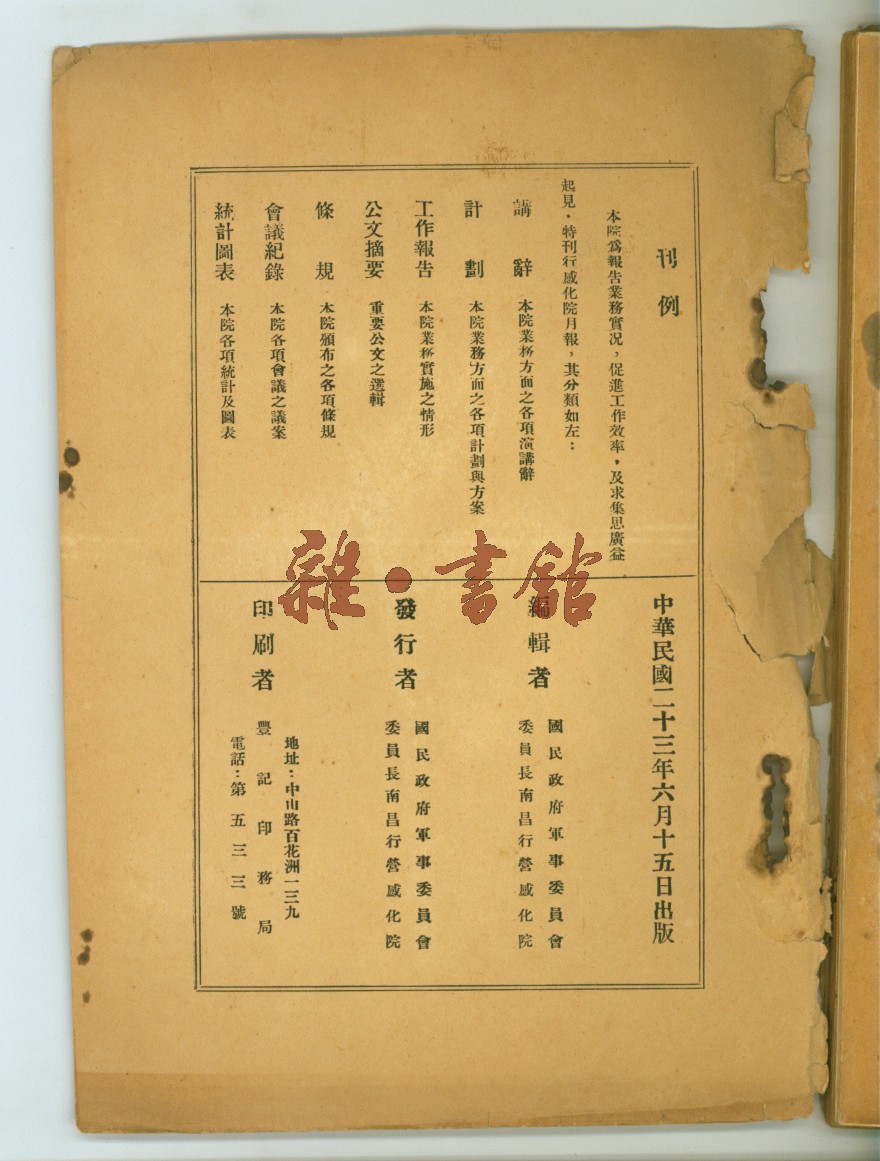 刊例
本院爲報告業務實况，促進工作效率，及求集思廣益
起見，特刊行感化院月報，其分類如左：
講辭　本院業務方面之各項演講辭
計劃　本院業務方面之各項計劃與方案
工作報告　本院業務實施之情形
公文摘要　重要公文之選輯
條規　本院頒布之各項條規
會議紀錄　本院各項會議之議案
統計圖表　本院各項統計及圖表
中華民國二十三年六月十五日出版
編輯者　國民政府軍事委員會
委員長南昌行營感化院
發行者　國民政府軍事委員會
委員長南昌行營感化院
印刷者　豐記印務局
地址：中山路百花洲一三九
電話：第五三三號
雜·書館